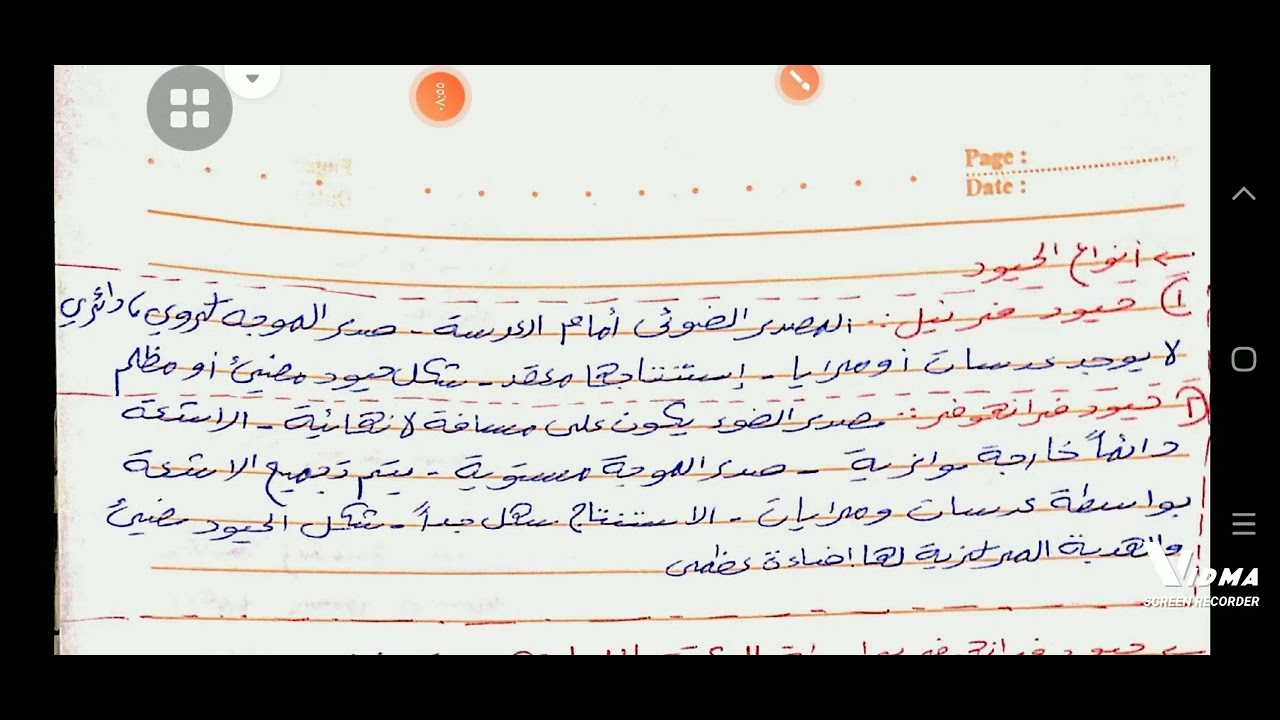 Page :
Date :
← أنواع الحيود
١) حيود فرنيل :- المصدر الضوئي أمام العدسة - صدر الموجه كروي، دائري
لا يوجد عدسات أو مرايا - إستنتاجها معقد - شكل حيود مضيئ أو مظلم
حيود فرانهوفر :- مصدر الضوء يكون على مسافة لا نهائية - الاشعة
دائماً خارجة موازية - صدر الموجة مستوية - يتم تجميع الاشعة
بواسطة عدسات ومرايات - الاستنتاج سهل جداً - شكل الحيود مضيئ
والهدبة المركزية لها اضاءة عظمى
VIDMA
SCREEN RECORDER